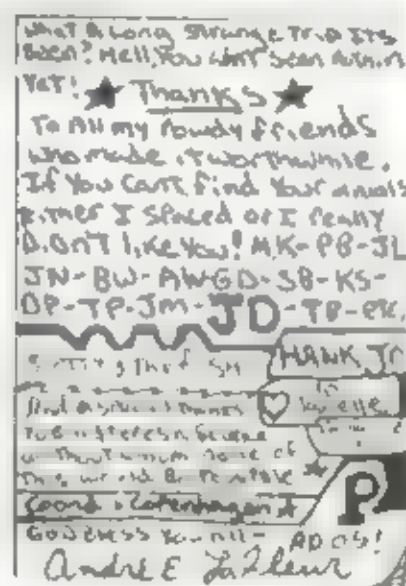 What A Long Strange Trip Its
Been? Hell, You Ain't Seen Nuthin
Yet! ★ Thanks ★
To All my rowdy friends
who made it worthwhile.
If You Cant find Your initials
either I spaced or I really
Didn't like You! MK-PB-JL
JN-BW-AWGD-SB-KS-
DP-TP-Jm-JD-TB-
HANK JR
And a special thanks
To
without whom none of
this would Be
Coors & Copenhagen ★
P
GOD BLESS You All - ADOS!
Andre E LaFleur